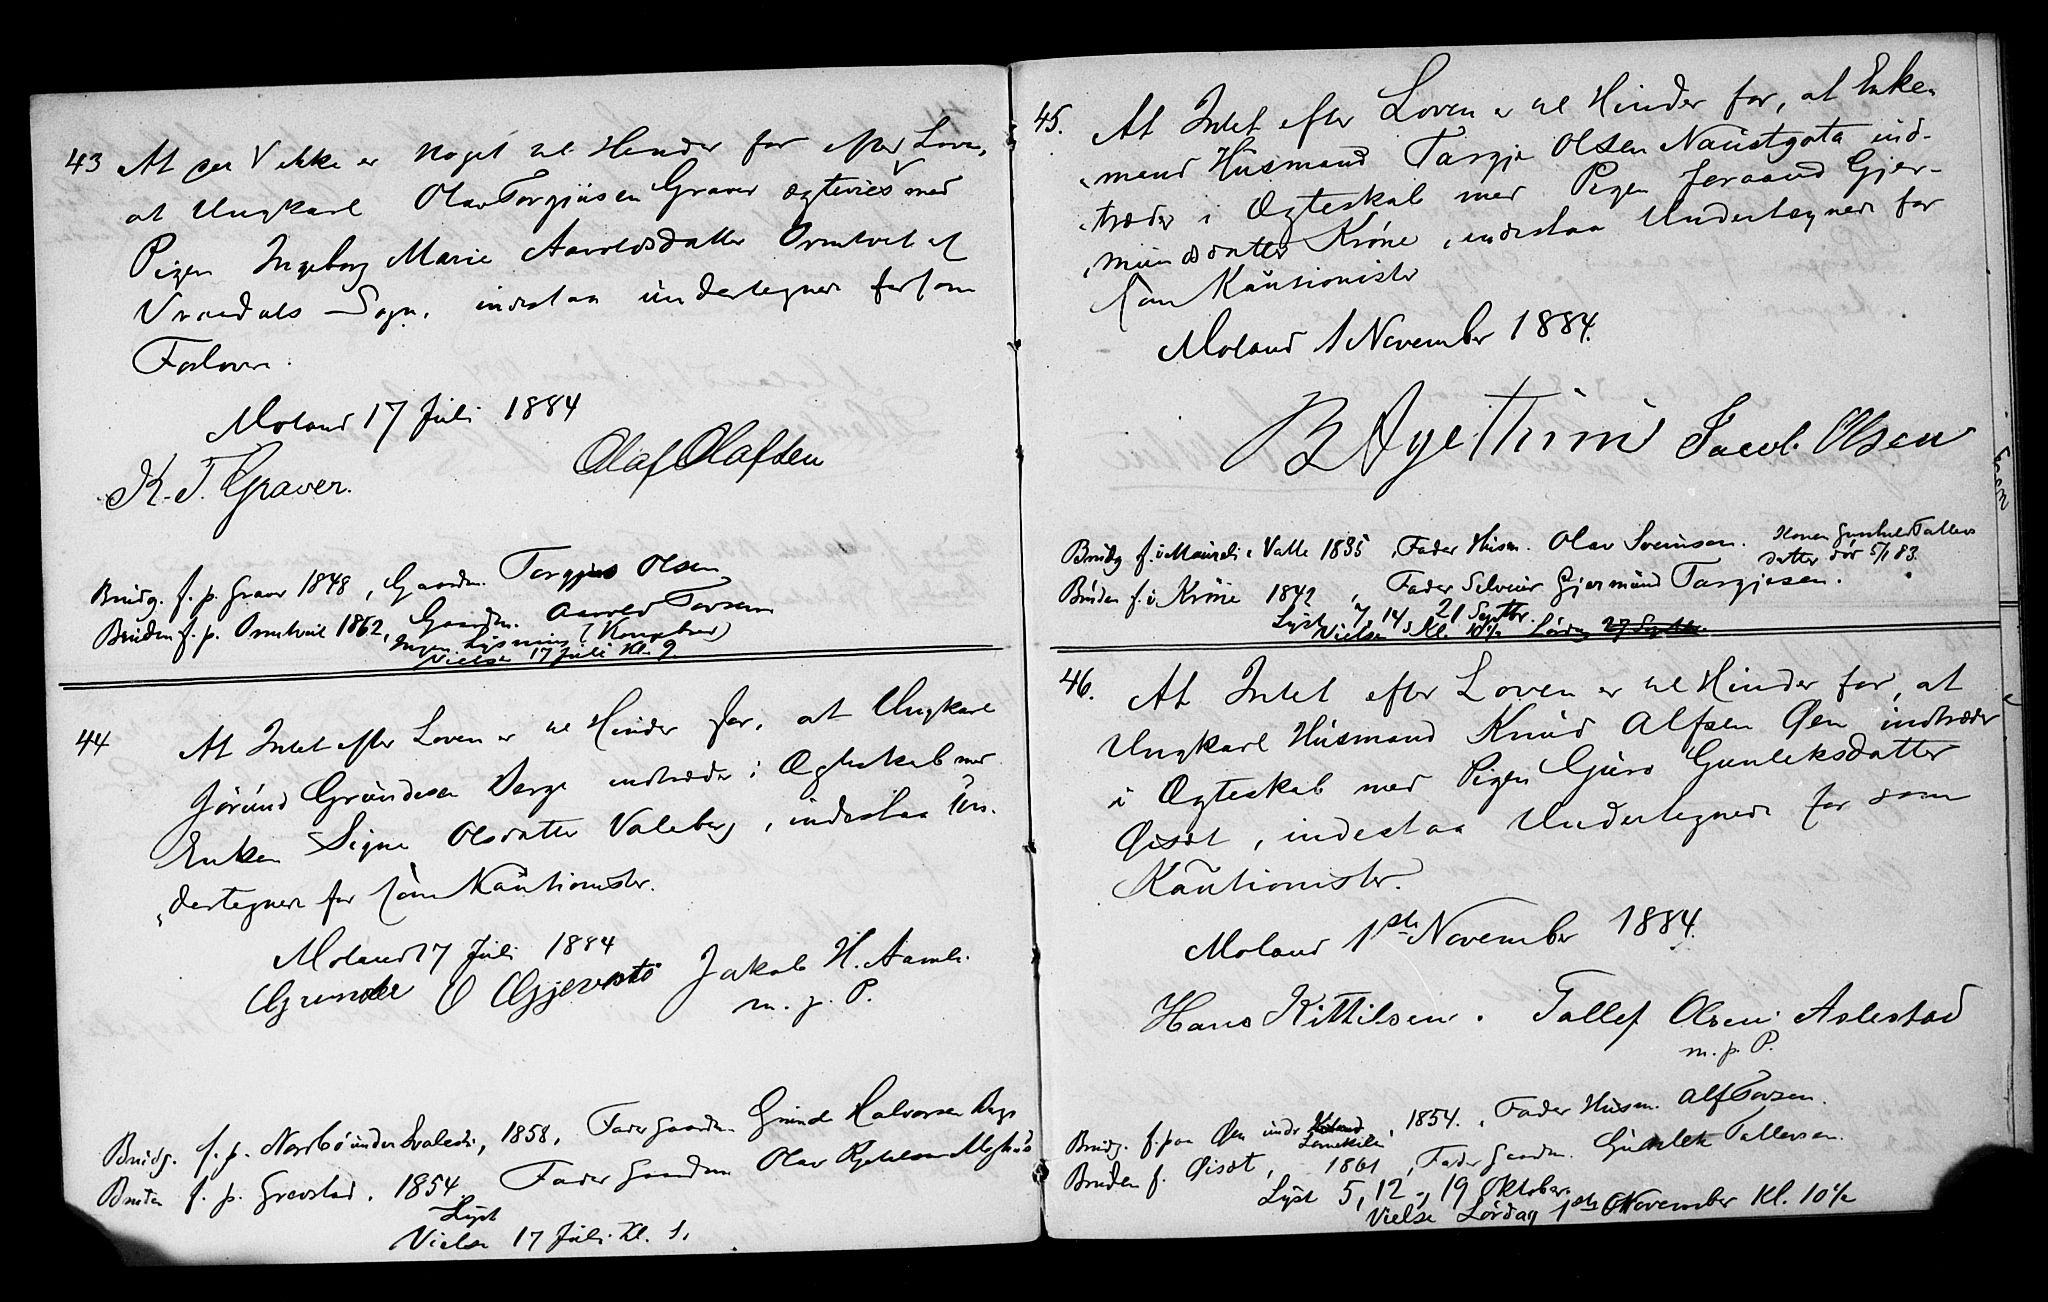 43 At der ikke er noget til Hinder for efter Loven,
at Ungkarl Olav Torgjusen Graver ægtevies med
Pigen Ingeborg Marie Aavoldsdatter Ormtveit af
Vraadals Sogn, indestaa undertegnede for som
Forlovere.
Moland 17 Juli 1884
K. T. Graver. Olaf Olafsen
Brudg. f. p. Graver 1848, Gaardm. Torgjus Olsen
Bruden f. p. Ormtveit 1862, Gaardm. Aavold Tovsen
Ingen Lysning (Kongebrev)
Vielse 17 Juli Kl. 9.
44 At Intet efter Loven er til Hinder for, at Ungkarl
Jörund Grundesen Berge indtræder i Ægteskab med
Enken Signe Olsdatter Valeberg, indestaa Un-
dertegnede for som Kautionister.
Moland 17 Juli 1884
Grunde O Gjevestø Jakob H. Aamli
m. p. P.
Brudg. f. p. Nordbö under Svaledi, 1858, Fader Gaardm. Grunde Halvorsen Berge
Bruden f. p. Grevstad, 1854 Fader Gaardm Olav Kjetilsen
Lyst
Vielse 17 Juli Kl. 1.
45. At Intet efter Loven er til Hinder for, at Enke-
mand Husmand Targje Olsen Naustgota ind-
træder i Ægteskab med Pigen Joraand Gjer-
mundsdatter Kröne, indestaa Undertegnede for
som Kautionister
Moland 1 November 1884.
B Aagethun Jacob Olsen
Brudg. f. i Valle 1835, Fader Husm. Olav Svenisen. Konen Gunhild Tallevs
datter dör 5/1 83.
Bruden f. i Kröne 1842, Fader Selveier Gjermund Targjesen.
Lyst 7, 14, 21 Septbr.
Vielse Kl. 10½ Lördag 27 Septbr.
46. At Intet efter Loven er til Hinder for, at
Ungkarl Husmand Knud Alfsen Øen indtræder
i Ægteskab med Pigen Guro Gunleksdatter
Øisæt, indestaa Undertegnede for som
Kautionister.
Moland 1ste November 1884.
Hans Kittilsen. Tallef Olsen Aslestad
m. p. P.
Brudg. f. paa Øen under 1854., Fader Husm. Alf Tovsen.
Bruden f. Øisæt, 1861, Fader Gaardm. Gunlek Tallevsen.
Lyst 5, 12 og 19 Oktober.
Vielse Lördag 1ste November Kl. 10½